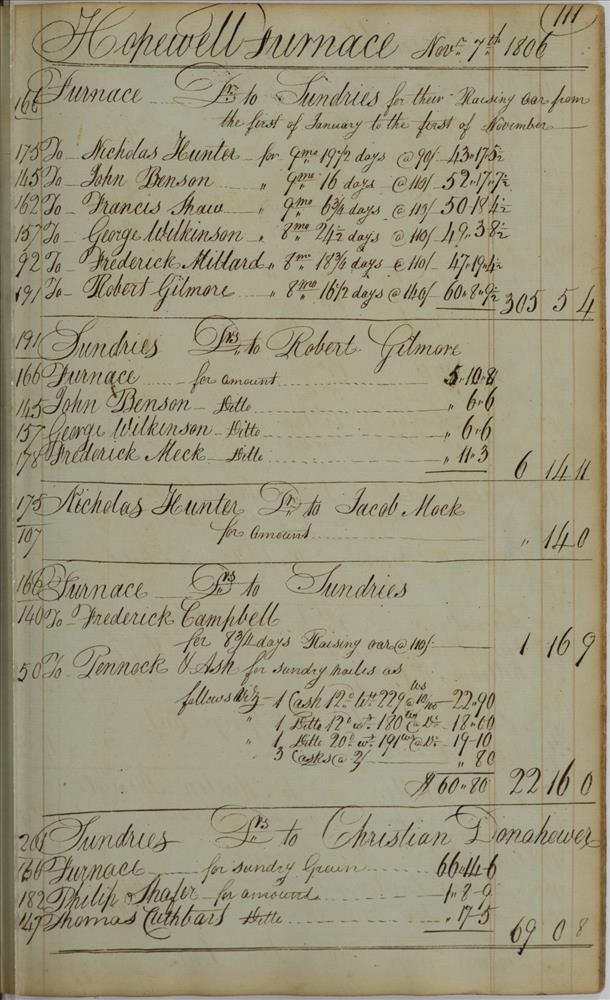 111
Hopewell Furnace Novr. 7th 1806
166 Furnace Drs to Sundries for their Raising oar from
the first of January to the first of November
175 To Nicholas Hunter for 9mo 19 1/2 days @ 90/ 43"17"5 1/2
145 To John Benson " 9mo 16 days @ 110/ 52"17"7 1/2
162 To Francis Shaw " 9mo 6 3/4 days @ 110/ 50"18"4 1/2
157 To George Wilkinson " 8mo 24 1/2 days @ 110/ 49"3"8 1/2
92 To Frederick Millard " 8mo 18 3/4 days @ 110/ 47"19"4 1/2
191 To Robert Gilmore " 8mo 16 1/2 days @ 140/ 60"8"9 1/2 305 5 4
191 Sundries Drs to Robert Gilmore
166 Furnace for amount 5"10"8
145 John Benson Ditto " 6"6
157 George Wilkinson Ditto " 6"6
178 Frederick Meck Ditto " 11"3 6 14 11
175 Nicholas Hunter Dr to Jacob Mock
107 for amount " 14 0
166 Furnace Drs to Sundries
140 To Frederick Campbell
for 8 3/4 days Raising oar @ 110/ 1 16 9
50 To Pennock & Ash for sundry nailes as
follows Viz 1 Cask 12d Wt 229 lbs @ 10/100 22"90
" 1 Ditto 12d wt 180 lbs @ Do 18"00
" 1 Ditto 20d wt 191 lbs @ Do 19-10
3 Casks @ 2/ " 80
$ 60"80 22 16 0
201 Sundries Drs to Christian Donahower
166 Furnace for sundry Grain 66"14"6
182 Philip Shafer for amount 1"8-9
147 Thomas Cuthbart Ditto " 17-5 69 0 8